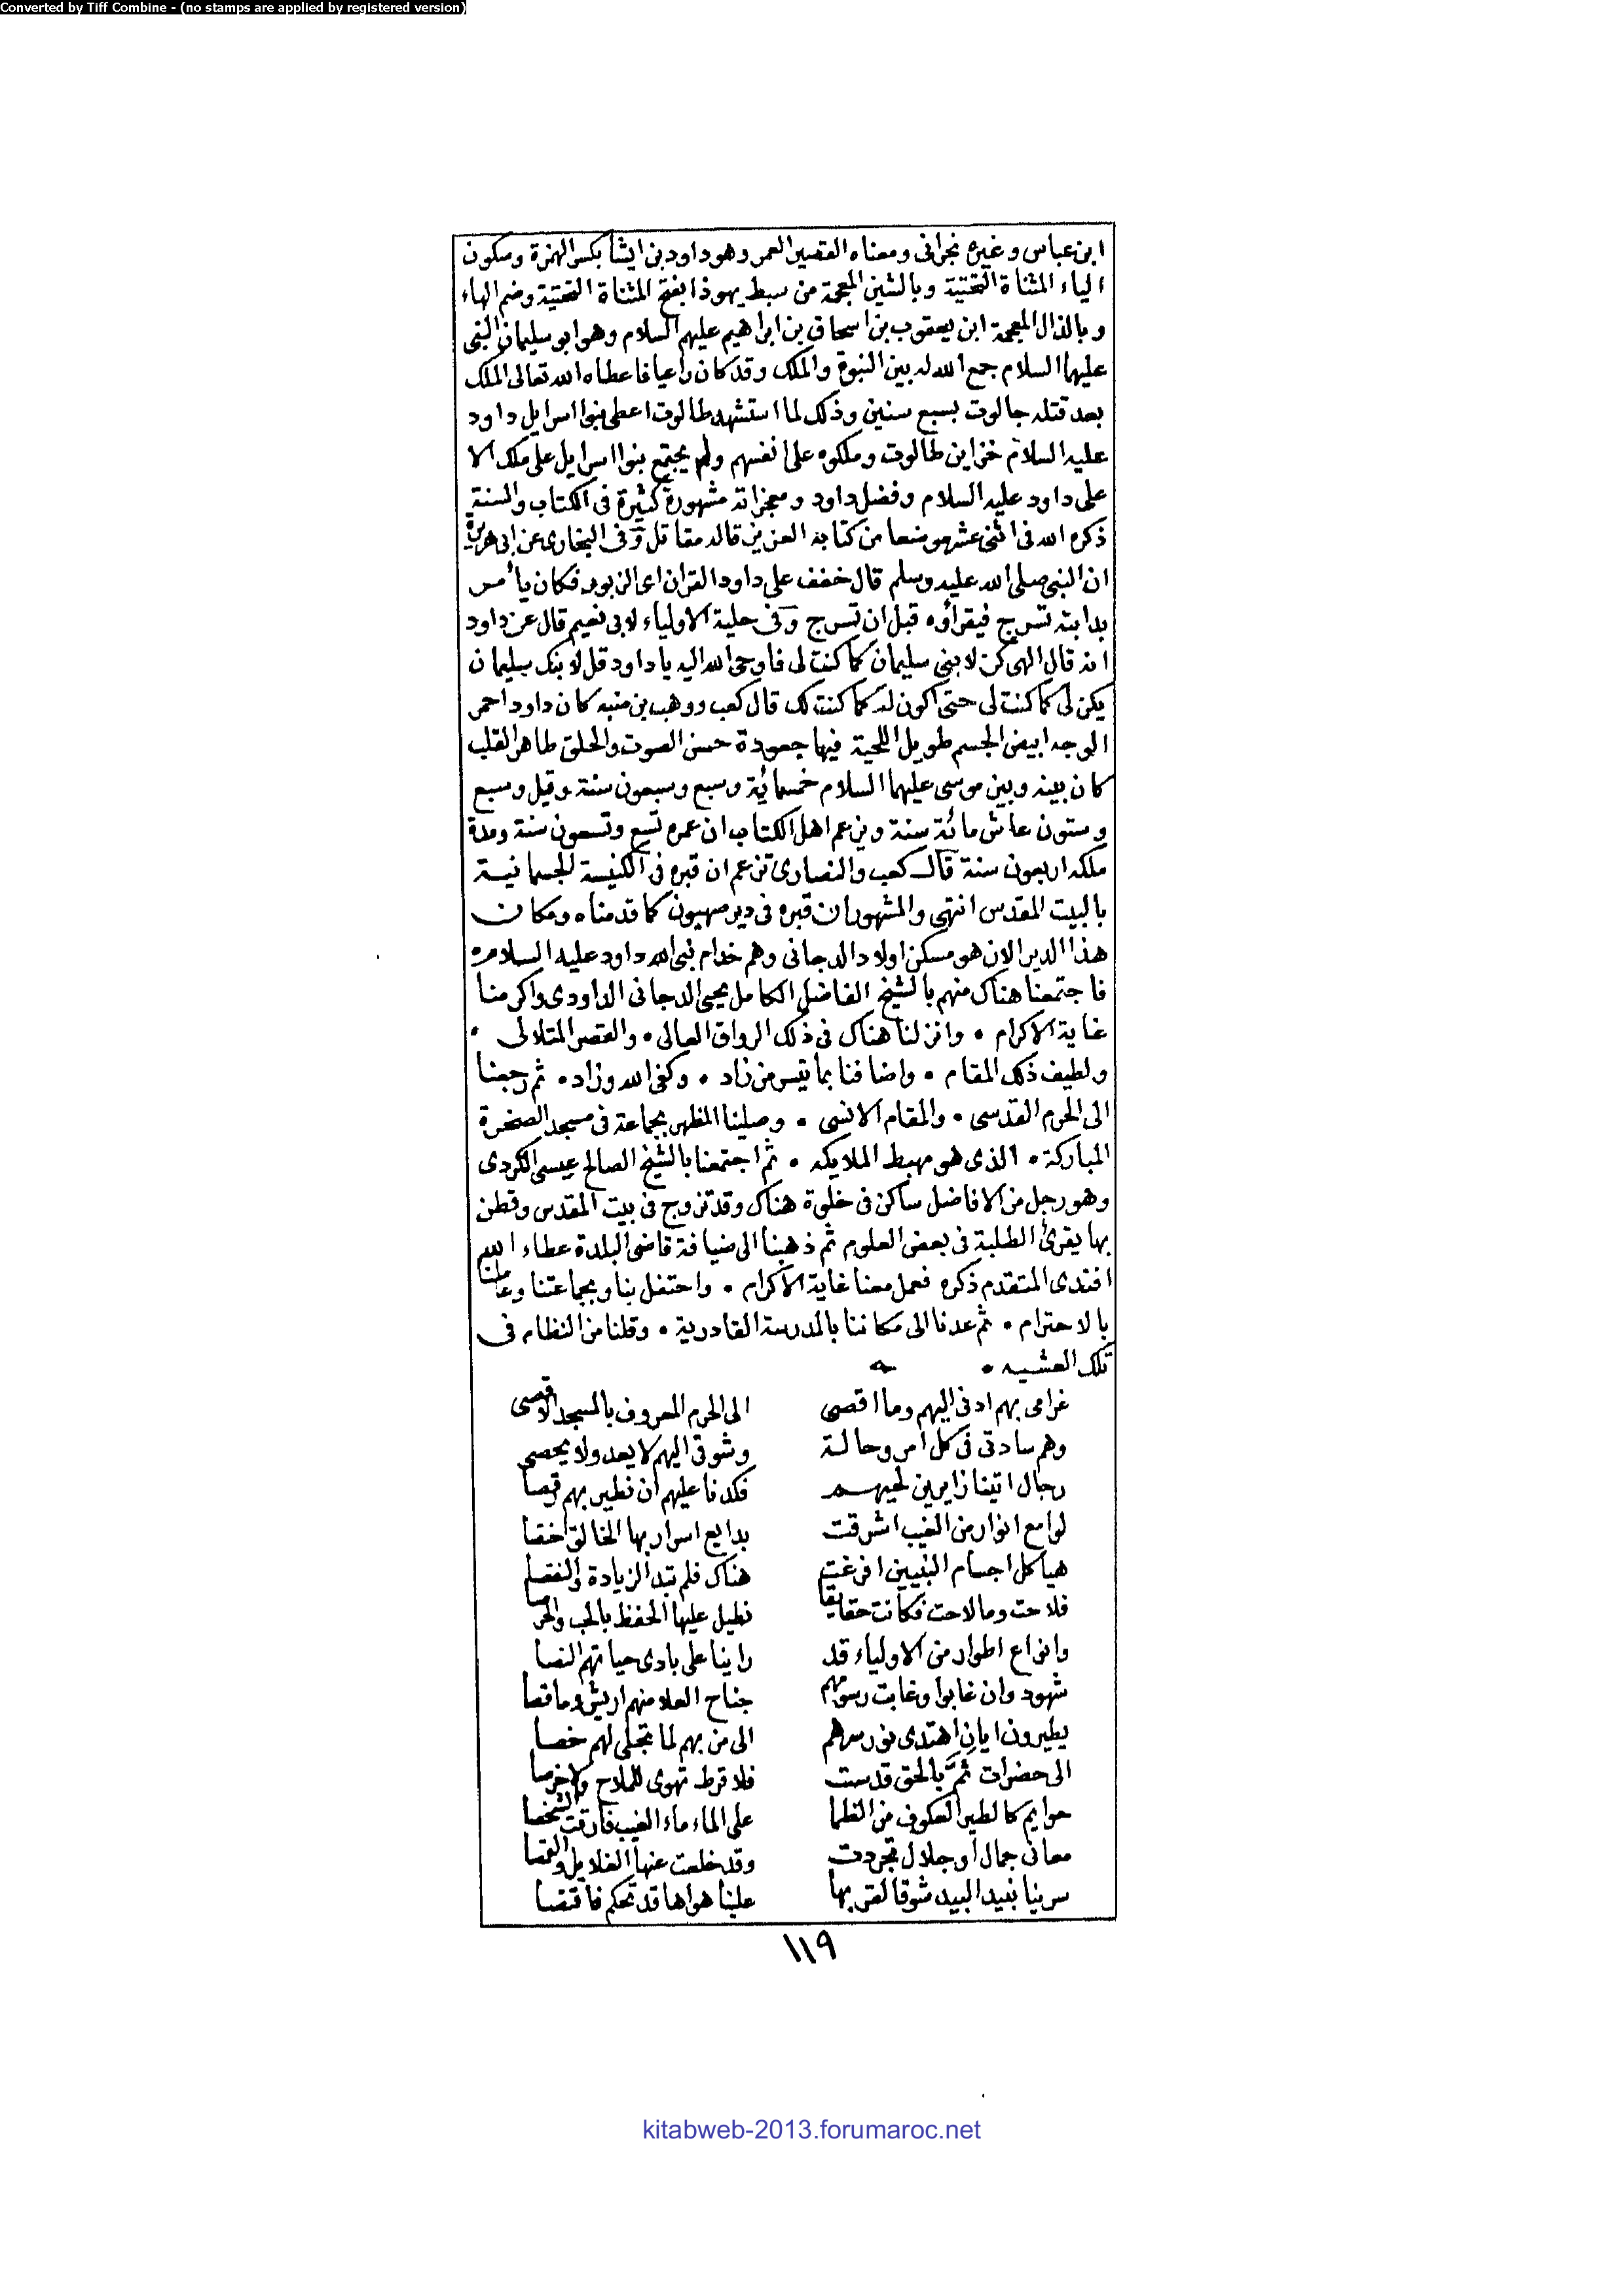 Converted by Tiff Combine - (no stamps are applied by registered version)
ابن عباس وغيره نجرانى ومعناه القصير العمر وهو داود بن ايشا بكسر الهمزة وسكون
الياء المثناة التحتية وبالشين المعجمة من سبط يهوذا بفتح المثناة التحتية وضم الهاء
وبالذال المعجمة ابن يعقوب بن اسحاق بن ابراهيم عليهم السلام وهو ابو سليمان النبى
عليهما السلام جمع الله له بين النبوة والملك وقد كان راعيا فاعطاه الله تعالى الملك
بعد قتله جالوت بسبع سنين وذلك لما استشهد طالوت اعطى بنوا اسرايل داود
عليه السلام خزاين طالوت وملكوه على انفسهم ولم يجتمع بنوا اسرايل على ملك الا
على داود عليه السلام وفضل داود ومعجزاته مشهورة كثيرة فى الكتاب والسنة
ذكره الله فى اثنى عشر موضعا من كتابه العزيز قاله مقاتل وفى البخارى عن ابى هريرة
ان النبى صلى الله عليه وسلم قال خفف على داود القران اى الزبور فكان يأمر
بدابته تسرج فيقرأوه قبل ان تسرج وفى حلية الاولياء لابى نعيم قال عن داود
انه قال الهى كن لابنى سليمان كما كنت لى فاوحى الله اليه يا داود قل لابنك سليمان
يكن لى كما كنت لى حتى اكون له كما كنت لك قال كعب ووهب بن منبه كان داود احمر
الوجه ابيض الجسم طويل اللحية فيها جعودة حسن الصوت والخلق طاهر القلب
كان بينه وبين موسى عليهما السلام خمسمائة وسبع وسبعون سنة وقيل وسبع
وستون عاش مائة سنة ويزعم اهل الكتاب ان عمره تسع وتسعون سنة ومدة
ملكه اربعون سنة قال كعب والنصارى تزعم ان قبره فى الكنيسة الجسمانية
بالبيت المقدس انتهى والمشهور ان قبره فى دير صهيون كما قدمناه ومكان
هذا الدير الان هو مسكن اولاد الدجانى وهم خدام نبى الله داود عليه السلام
فاجتمعنا هناك منهم بالشيخ الفاضل الكامل يحيى الدجانى الداودى واكرمنا
غاية الاكرام • وانزلنا هناك فى ذلك الرواق العالى • والقصر المتلالى •
ولطيف ذلك المقام • واضافنا بما تيسر من زاد • وكفى الله وزاد • ثم رجعنا
الى الحرم القدسى • والمقام الانسى • وصلينا الظهر بجماعة فى مسجد الصخرة
المباركة • الذى هو مهبط الملايكه • ثم اجتمعنا بالشيخ الصالح عيسى الكردى
وهو رجل من الافاضل ساكن فى خلوة هناك وقد تزوج فى بيت المقدس وقطن
بها يقرئ الطلبة فى بعض العلوم ثم ذهبنا الى ضيافة قاضى البلدة عطاء الله
افندى المتقدم ذكره فعمل معنا غاية الاكرام • واحتفل بنا وبجماعتنا وعاملنا
بالاحترام • ثم عدنا الى مكاننا بالمدرسة القادرية • وقلنا من النظام فى
تلك العشيه •
غرامى بهم ادنى اليهم وما اقصى الى الحرم المعروف بالمسجد الاقصى
وهم سادتى فى كل امر وحالة وشوقى اليهم لا يعد ولا يحصى
رجال اتينا زايرين لحيهم فكدنا عليهم ان نطير بهم رقصا
لوامع انوار من الغيب اشرقت بدايع اسرار بها الخالق اختصا
هياكل اجسام النبيين افرغت هناك فلم تبد الزيادة والنقصا
فلاحت وما لاحت فكانت حقايقا نطيل عليها الحفظ بالحب والحرصا
وانواع اطوار من الاولياء قد راينا على بادى حياتهم النصا
شهود وان غابوا وغابت رسومهم جناح العلا منهم اريش وما قصا
يطيرون ايان اهتدى نور سرهم الى من بهم لما تجلى لهم خصا
الى حضرات ثم بالحق قدست فلا قرط تهوى للملاح ولا خرصا
حوايم كالطير العكوف من الظما على الماء ماء الغيب فارقت الشخصا
معانى جمال او جلال تجردت وقد خلعت عنها الغلايل والقمصا
سرينا بنيد البيد شوقا لقربها علينا هواها قد تحكم فاقتصا
١١٩
kitabweb-2013.forumaroc.net